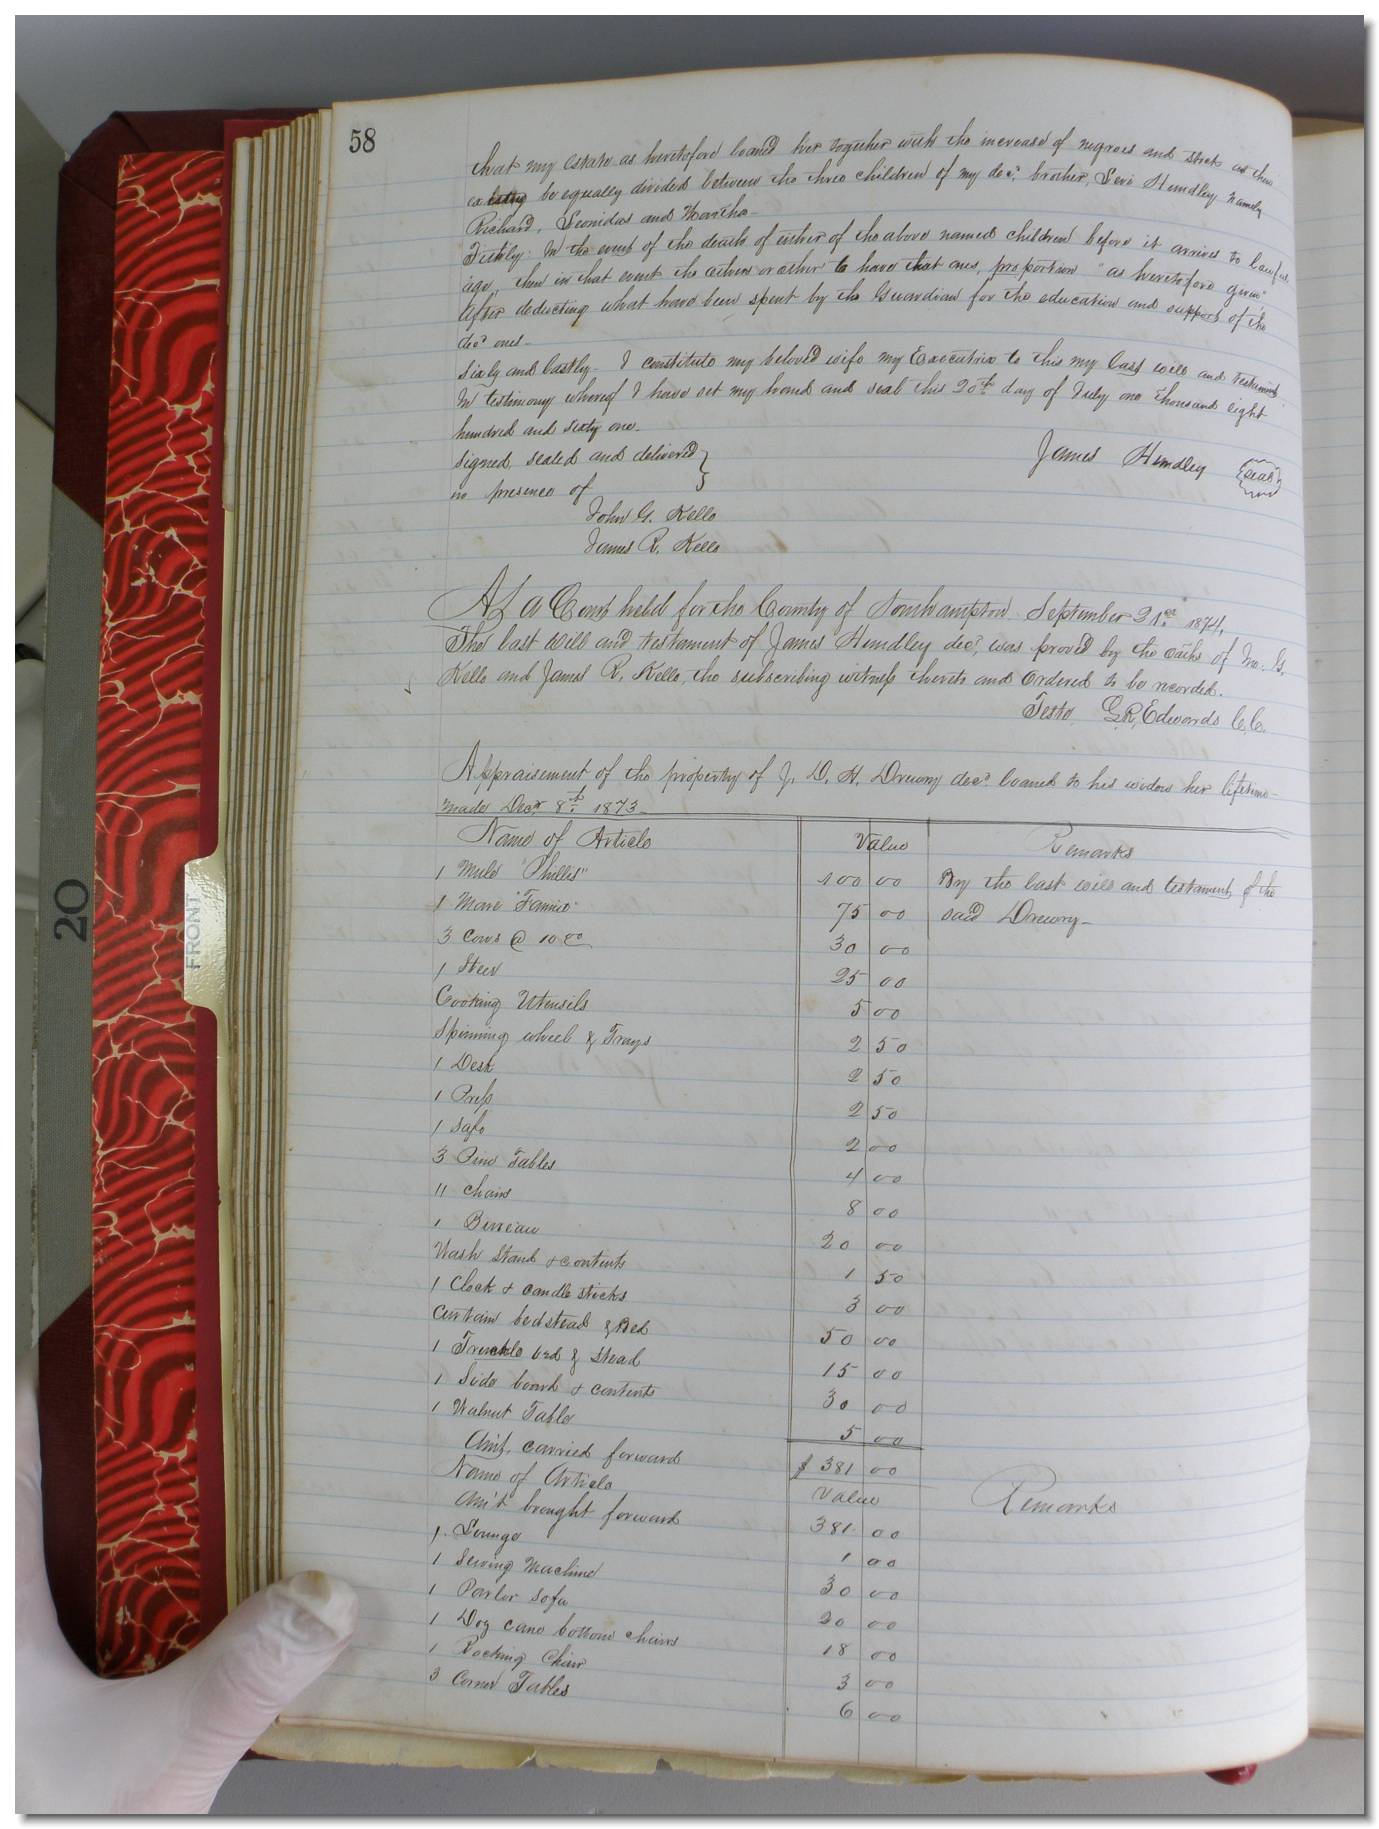 58
that my estate as heretofore loaned her together with the increase of negroes and stock as then
existing be equally divided between the three children of my decd. brother, Levi Hundley, namely
Richard, Leonidas and Martha-
Fifthly: In the event of the death of either of the above named children before it arrives to lawful
age, then in that event the others or other to have that ones, proportion "as heretofore given"
After deducting what have been spent by the Guardian for the education and support of the
decd ones-
Sixly and lastly- I constitute my beloved wife my Executrix to this my last will and testament
In testimony whereof I have set my hand and seal this 20th day of July one thousand eight
hundred and sixty one.
signed sealed and delivered } James Hundley seal
in presence of
John G. Kello
James R. Kello
At a Court held for the County of Southampton September 21st 1874.
The last will and testament of James Hundley decd, was proved by the oaths of Jno. G.
Kello and James R. Kello, the subscribing witness thereto and ordered to be recorded.
Teste G.R. Edwards C.C.
Appraisement of the property of J. D. H. Drewry decd. loaned to his widow her lifetime-
made Decr 8th 1873-
Name of Article Value Remarks
1 Mule "Phillis" 100 00 By the last will and testament of the
1 Mare "Fannie" 75 00 said Drewry-
3 Cows @ 10 00 30 00
1 Steer 25 00
Cooking Utensils 5 00
Spinning wheel & Trays 2 50
1 Desk 2 50
1 Press 2 50
1 Safe 2 00
3 Pine Tables 4 00
11 chairs 8 00
1 Bureau 20 00
Wash Stand & contents 1 50
1 Clock & candle sticks 3 00
Curtain bedstead & Bed 50 00
1 Trunkle bed & Stead 15 00
1 Side board & contents 30 00
1 Walnut Table 5 00
Am't. carried forward $ 381 00
Name of Article Value Remarks
Am't brought forward 381 00
1 Lounge 1 00
1 Sewing Machine 30 00
1 Parlor Sofa 20 00
1 Doz cane bottom chairs 18 00
1 Rocking Chair 3 00
3 Corner Tables 6 00
20
FRONT